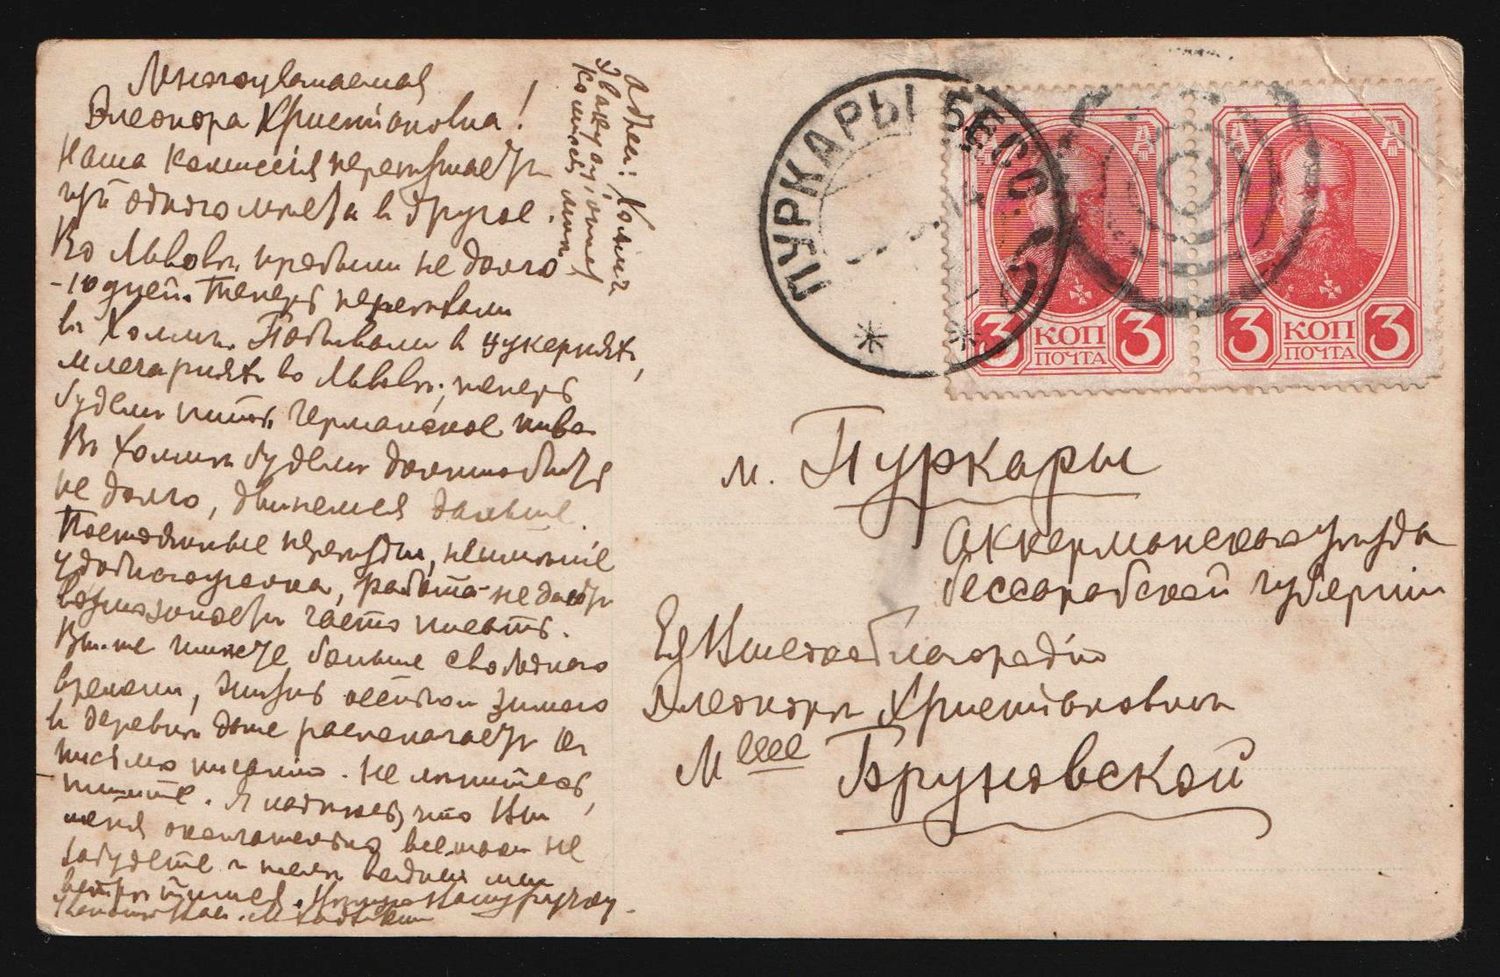 Многоуважаемая
Элеонора Христіановна!
Наша комиссія переѣзжаетъ
изъ одного мѣста в другое.
Во Львовѣ пробыли не долго
-10 дней. Теперь переѣхали
въ Холмъ. Побывали в цукерняхъ,
млечарняхъ во Львовѣ; теперь
будемъ пить германское пиво
Въ Холмѣ будемъ
не долго, двинемся дальше.
Постоянные переѣзды, неимѣніе
удобного уголка, работа - не даютъ
возможности часто писать.
Вы-же имѣете больше свободного
времени, жизнь осенью зимою
в деревнѣ даже располагаетъ къ
письмо писанію. Не лѣнитесь,
пишите. Я надѣюсь, что Вы
меня окончательно всетаки не
забудете и
Цѣлую Вашу ручку.
Адрес: Холмъ
ПУРКАРЫ БЕСС.
3 КОП 3
ПОЧТА
3 КОП 3
ПОЧТА
м. Пуркары
Аккерманского уѣзда
бессарабской губерніи
Ея Высокоблагородію
Элеонорѣ Христіановнѣ
Мlle Бруновской